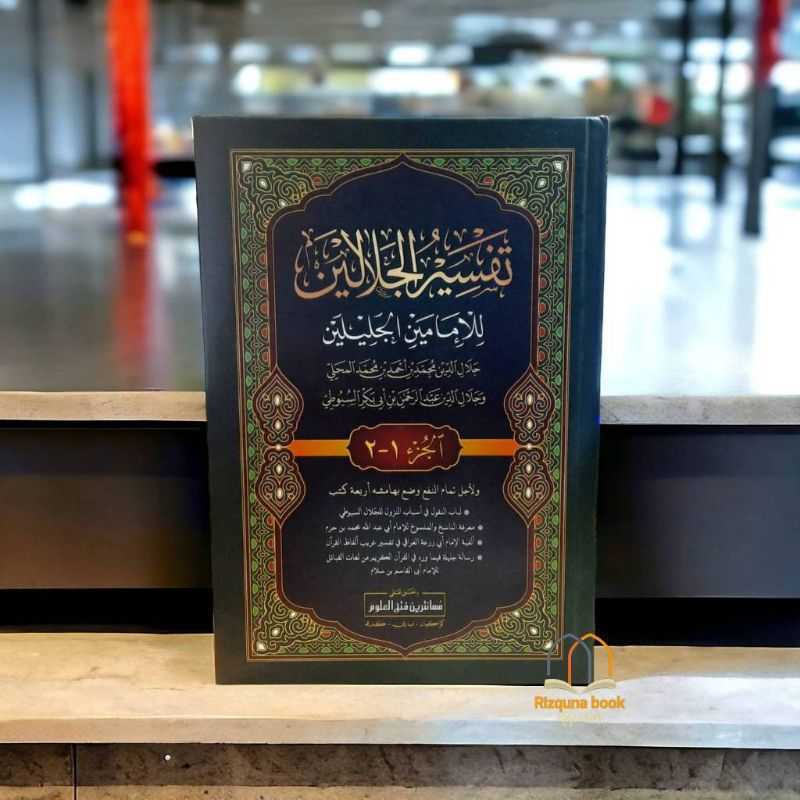 تفسير الجلالين
للإمامين الجليلين
جلال الدين محمد بن أحمد بن محمد المحلي
وجلال الدين عبد الرحمن بن أبي بكر السيوطي
الجزء ١-٢
ولأجل تمام النفع وضع بهامشه أربعة كتب
• لباب النقول في أسباب النزول للجلال السيوطي
• معرفة الناسخ والمنسوخ للإمام أبي عبد الله محمد بن حزم
• ألفية الإمام أبي زرعة العراقي في تفسير غريب ألفاظ القرآن
• رسالة جليلة فيما ورد في القرآن الكريم من لغات القبائل
للإمام أبي القاسم بن سلام
فسانترين فتح العلوم
Rizquna book